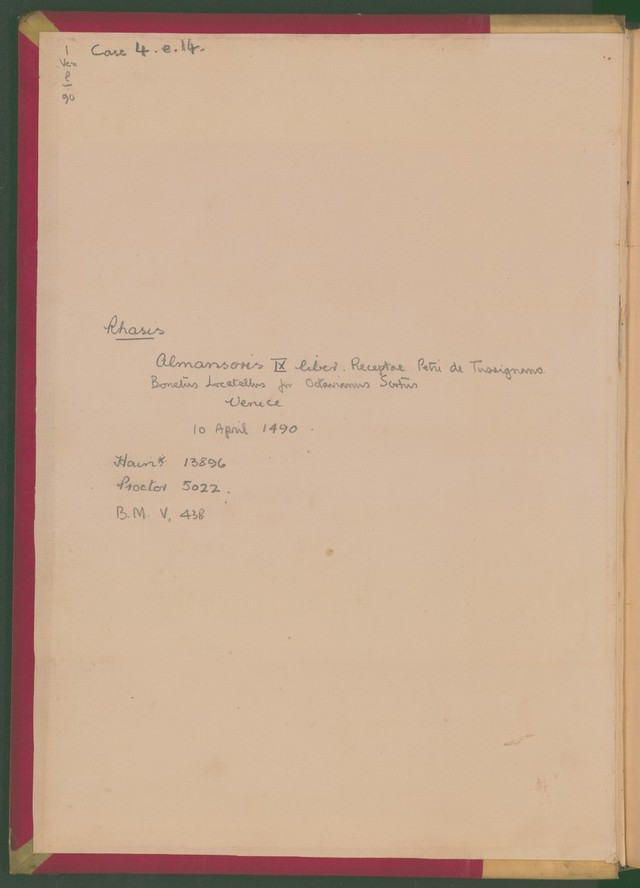 Case 4. e. 14.
1
Ven
90
Rhasis
Almansoris IX liber. Receptae Petri de Tussignano
Bonetus Locatellus for Octavianus Scotus
Venice
10 April 1490.
Hain* 13896
Proctor 5022.
B.M. V, 438